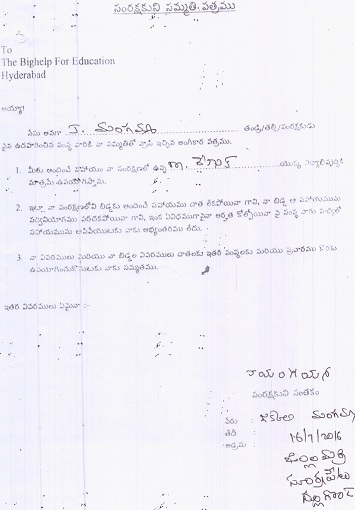 సంరక్షకుని సమ్మతి పత్రము
To
The Bighelp For Education
Hyderabad
అయ్యా!
నేను అనగా J. మంగమ్మ తండ్రి/తల్లి/సంరక్షకుడు
పైన ఉదహరించిన సంస్థ వారికి నా సమ్మతితో వ్రాసి ఇచ్చిన అంగీకార పత్రము.
1. మీరు అందించే సహాయం నా సంరక్షణలో ఉన్న యొక్క
మాత్రమే ఉపయోగిస్తాను.
2. ఇట్లూ నా సంరక్షణలోని బిడ్డకు అందించే సహాయము దాత లేకపోయినా గాని, నా బిడ్డ ఆ సహాయమును
సద్వినియోగము పరచకపోయినా గాని, ఇంక ఏవిధముగానైనా అర్హత కోల్పోయినా పై సంస్థ వారు మధ్యలో
సహాయమును ఆపివేయుటకు నాకు అభ్యంతరము లేదు.
3. నా వివరములు మరియు నా బిడ్డల వివరములు దాతలకు ఇతర సంస్థలకు మరియు ప్రచారము కొరకు
ఉపయోగించుకొనుటకు నాకు సమ్మతము.
ఇతర వివరములు ఏమైనా :-
సంరక్షకుని సంతకం
పేరు : మంగమ్మ
తేది : 16/7/2016
అడ్రసు :
సూర్యపేట
నల్లగొండ